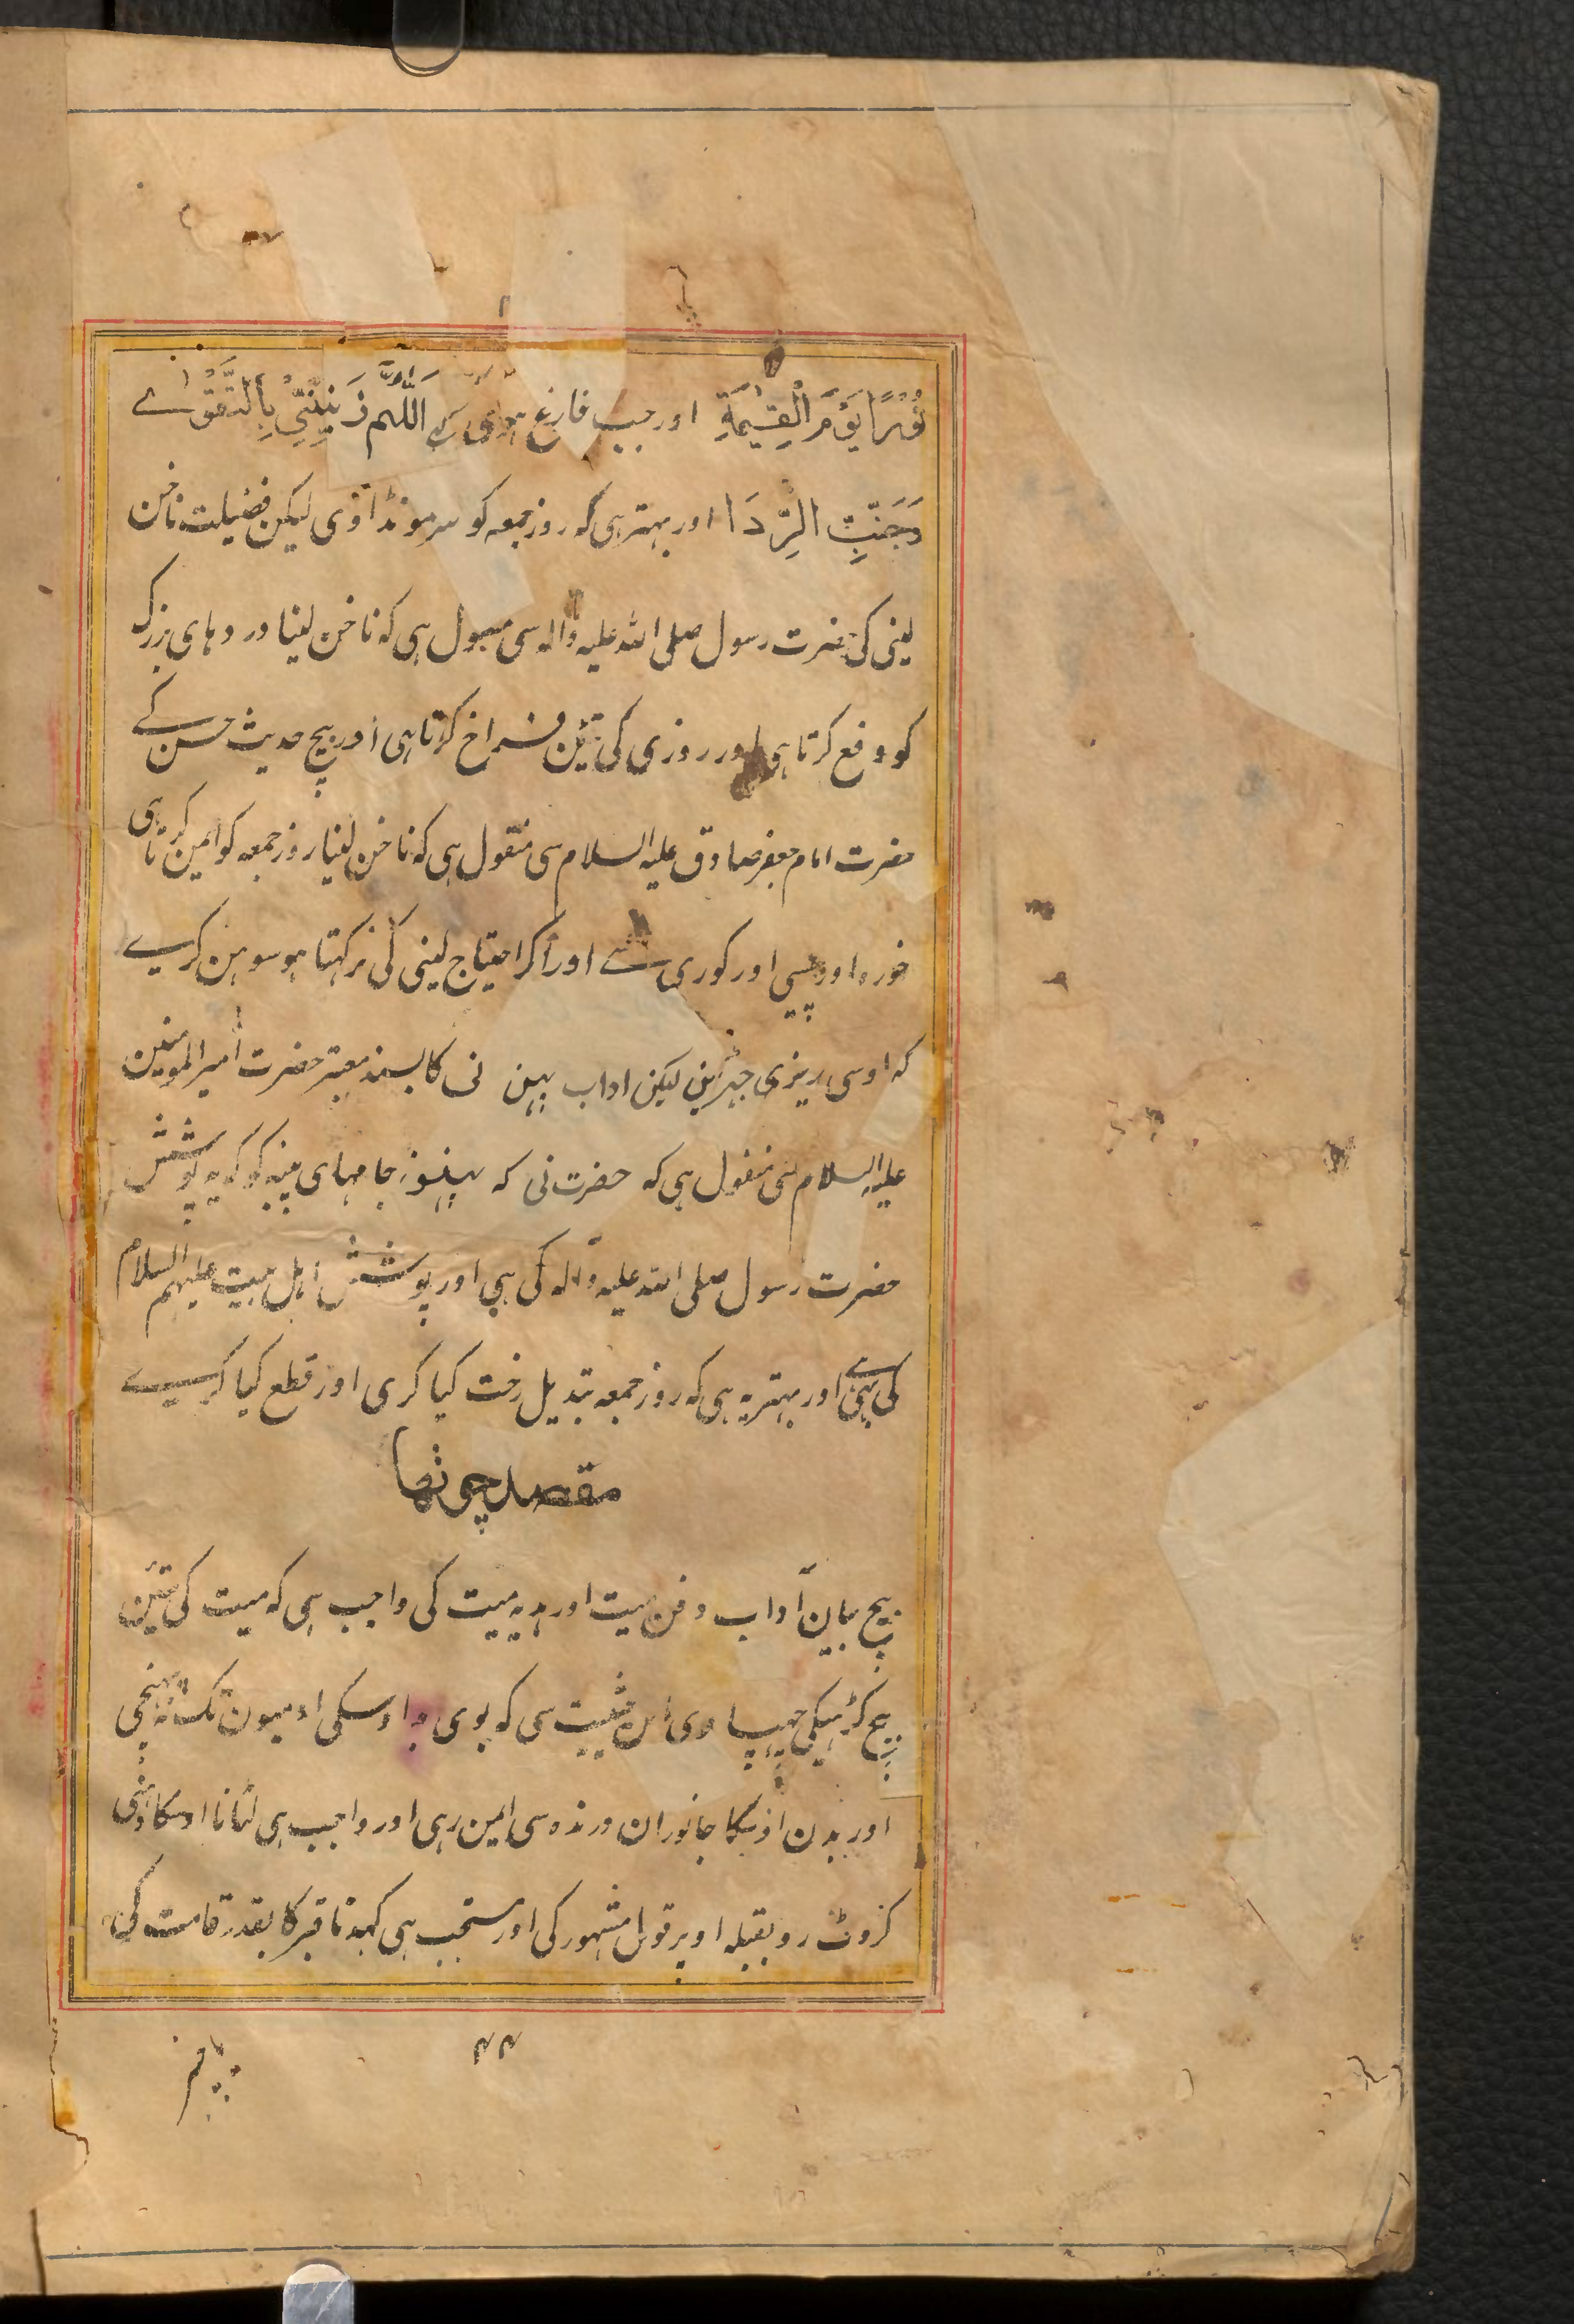 نُوْرًا یَوْمَ الْقِیٰمَةِ اور جب فارغ ہووی کہے اَللّٰهُمَّ زَیِّنِّیْ بِالتَّقْوٰے
وَجَنِّبْنِ الرَّدَا اور بہتر ہی کہ روز جمعہ کو سر مونڈاوی لیکن فضیلت ناخن
لینی کی حضرت رسول صلی اللہ علیہ وآلہ سی منقول ہی کہ ناخن لینا دردہای بزرک
کو دفع کرتا ہی اور روزی کی تئین فراخ کرتا ہی اور بیچ حدیث حسن کے
حضرت امام جعفر صادق علیہ السلام سی منقول ہی کہ ناخن لینا روز جمعہ کو ایمن کرتا ہی
خورہ اور پیسی اور کوری سے اور اکر احتیاج لینی کی نرکہتا ہو سوہن کرے
کہ اوسی ریزی جہڑین لیکن اداب پہن نی کا بسند معتبر حضرت امیرالمومنین
علیہ السلام سی منقول ہی کہ حضرت نی کہ پہنو جامہای پنبہ کو کہ یہ پوشش
حضرت رسول صلی اللہ علیہ وآلہ کی ہی اور پوشش اہل بیت علیہم السلام
کی ہی اور بہتر یہ ہی کہ روز جمعہ تبدیل رخت کیا کری اور قطع کیا کرے
مقصد چوتھا
بیچ بیان آداب دفن میت اور ہدیہ میت کی واجب ہی کہ میت کی تئین
بیچ کڑہیکی چہپاوی اس حیثیت سی کہ بوی بد اوسکی ادمیون تک نہ پہنچی
اور بدن اوسکا جانوران درندہ سی ایمن رہی اور واجب ہی لٹانا اوسکا دہنی
کروٹ رو بقبلہ اوپر قول مشہور کی اور مستحب ہی کہودنا قبر کا بقدر قامت کی
۴۴